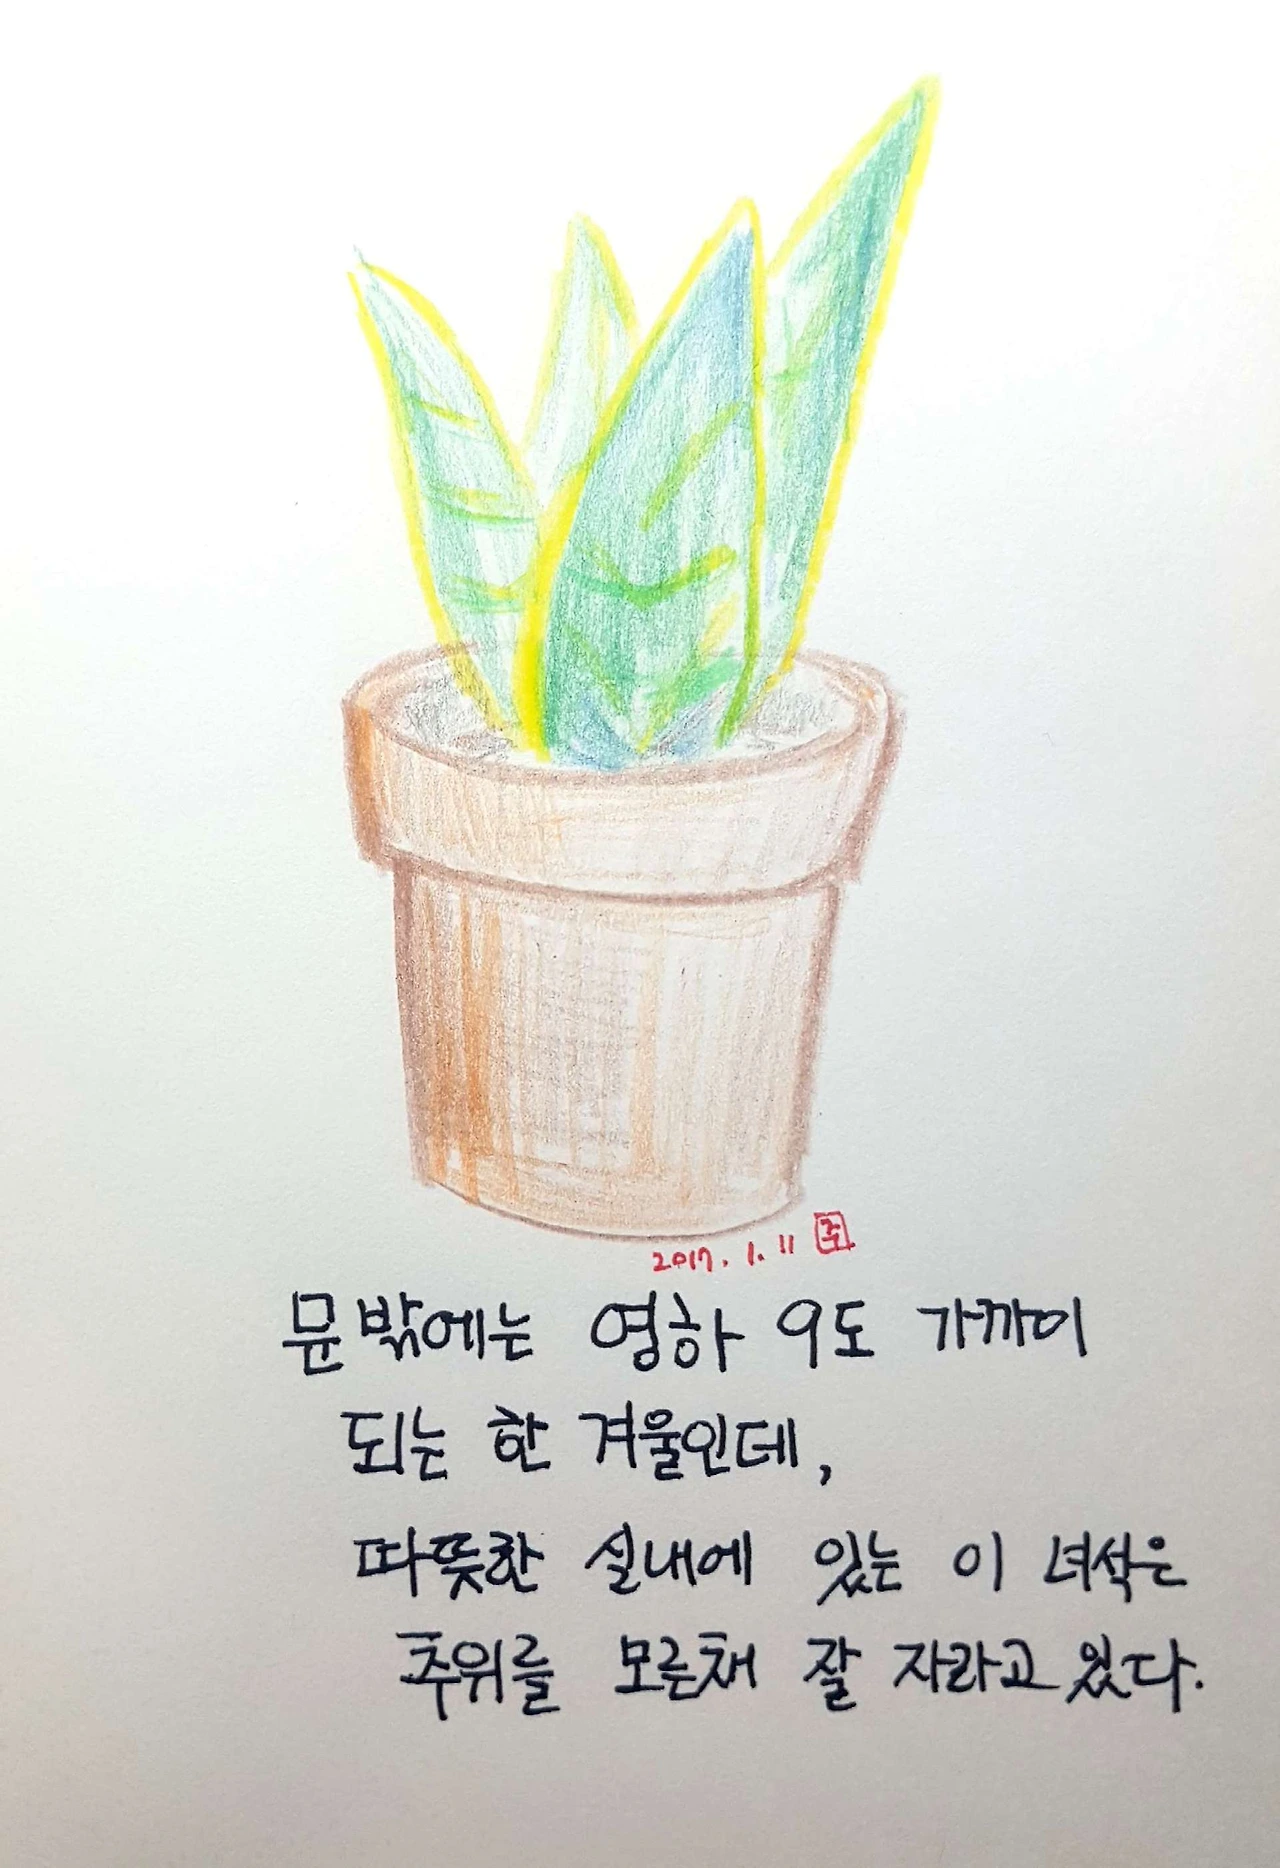 2017. 1. 11 주
문밖에는 영하 9도 가까이
되는 한 겨울인데,
따뜻한 실내에 있는 이 녀석은
추위를 모른채 잘 자라고 있다.